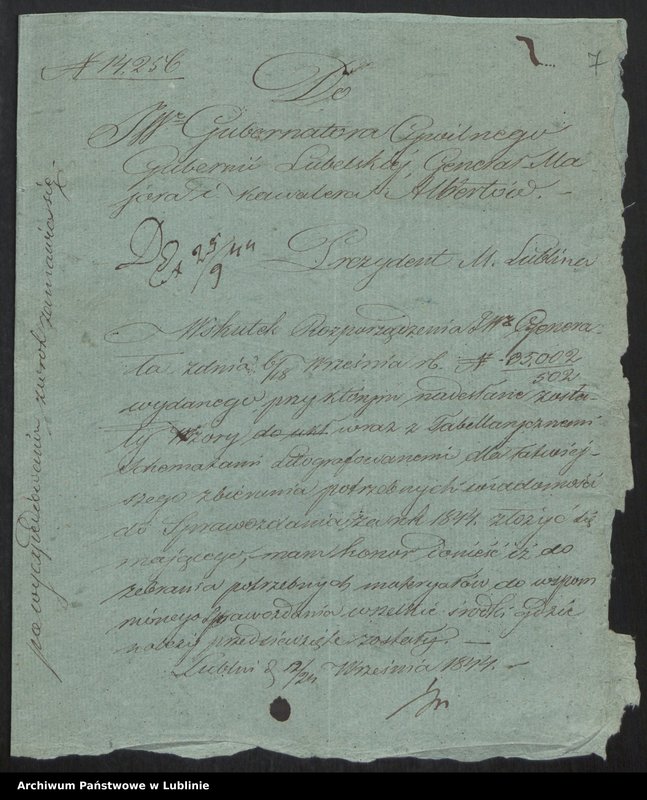 № 14,256
7
Do
JWo Gubernatora Cywilnego
Gubernii Lubelskiej, Generał Ma
jora i Kawalera Albertów. –
Ex 25/9 44
Prezydent M. Lublina
Wskutek Rozporządzenia JWo Genera-
ła z dnia 6/18 Września rb. № 95,002/502
wydanego przy którym nadesłane zosta-
ły Wzory do wraz z Tabellarycznemi
Schematami Litografowanemi dla łatwiej-
szego zbierania potrzebnych wiadomości
do Sprawozdania za rok 1844 złożyć się
mającego, mam honor donieść iż do
zebrania potrzebnych materyałów do wspom
nionego Sprawozdania wszelkie środki gdzie
należy przedsięwzięte zostały. –
Lublin d 12/24 Września 1844. –
po wyczyszczeniu zwrot zamawia się. –
Archiwum Państwowe w Lublinie